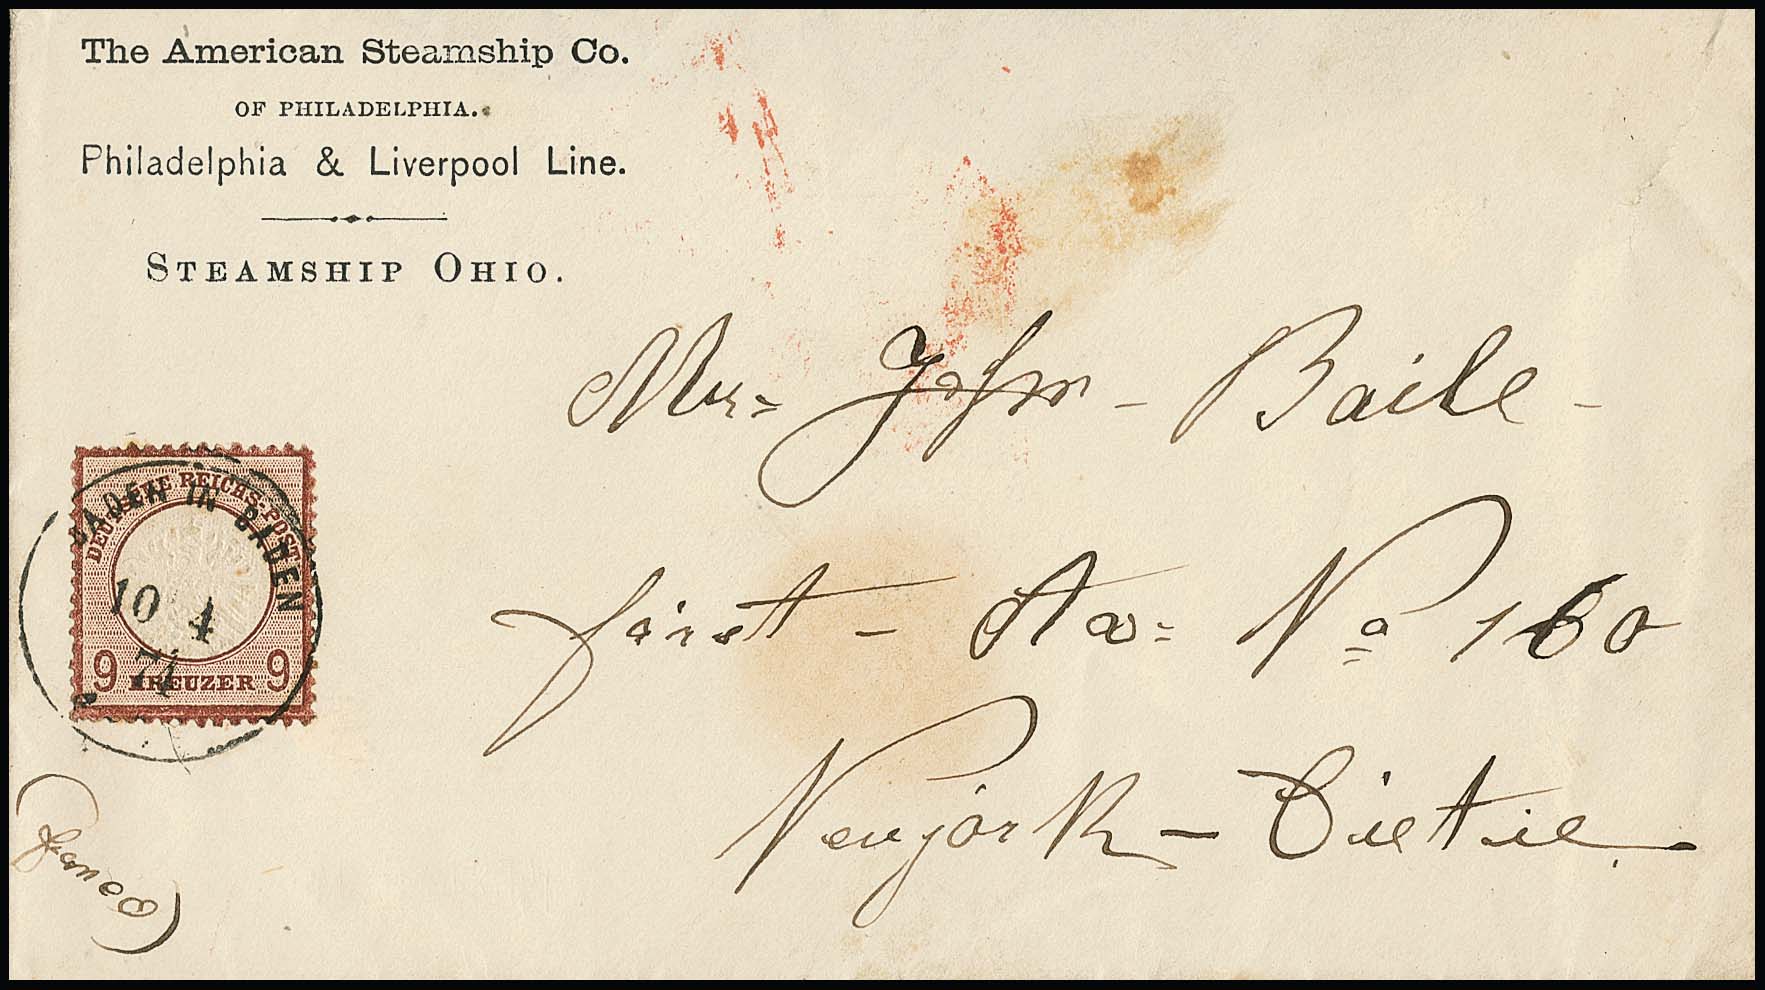 The American Steamship Co.
OF PHILADELPHIA.
Philadelphia & Liverpool Line.
STEAMSHIP OHIO.
Mr= John - Baile -
first - Av= No 160
Newjork - Cietie.
BADEN IN BADEN
10 4
74
DEUTSCHE REICHS-POST
9 KREUZER 9